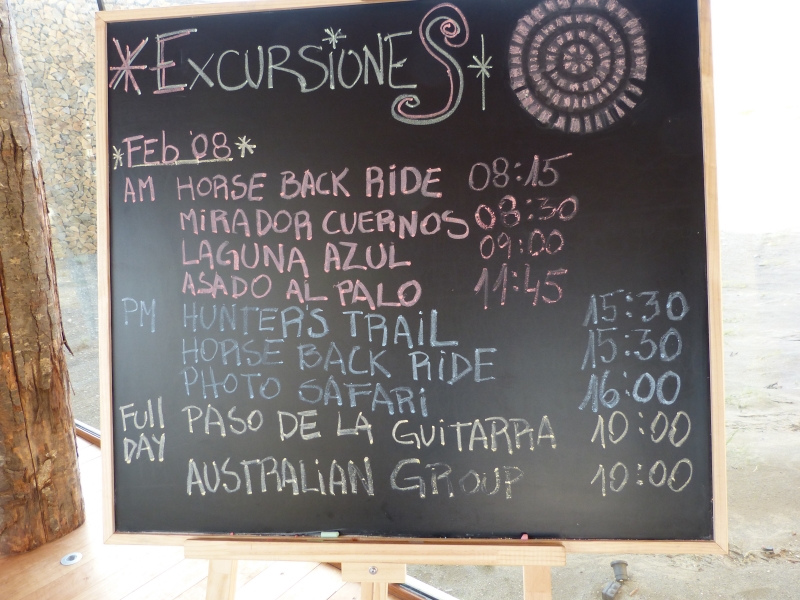 *EXCURSIONES*
*FEb '08*
AM HORSE BACK RiDE 08:15
MiRADOR CUERNOS 08:30
LAGUNA AZUL 09:00
ASADO AL PALO 11:45
PM HUNTER'S TRAiL 15:30
HORSE BACK RiDE 15:30
PHOTO SAFARi 16:00
FUll DAY PASO DE LA GUiTARRA 10:00
AUSTRALIAN GROUP 10:00